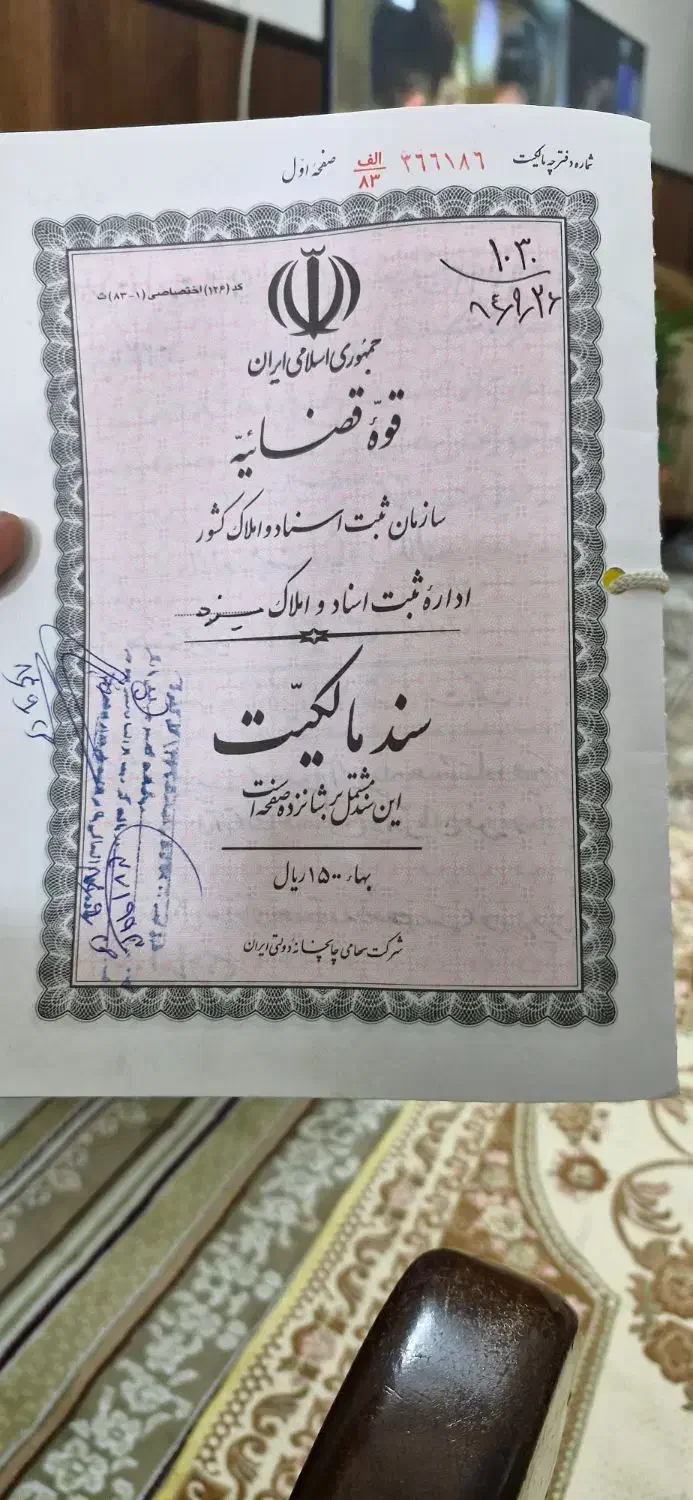 شماره دفترچه مالکیت ۳۶۶۱۸۶ الف/۸۳ صفحه اول
۱۰۳۰
۸۴٫۹٫۲۶
کد (۱۲۶) اختصاصی (۱-۸۳) ت
جمهوری اسلامی ایران
قوّهٔ قضائیّه
سازمان ثبت اسناد و املاک کشور
ادارهٔ ثبت اسناد و املاک یزد
سند مالکیّت
این سند مشتمل بر شانزده صفحه است
بهاء ۱۵۰۰ ریال
شرکت سهامی چاپخانهٔ دولتی ایران